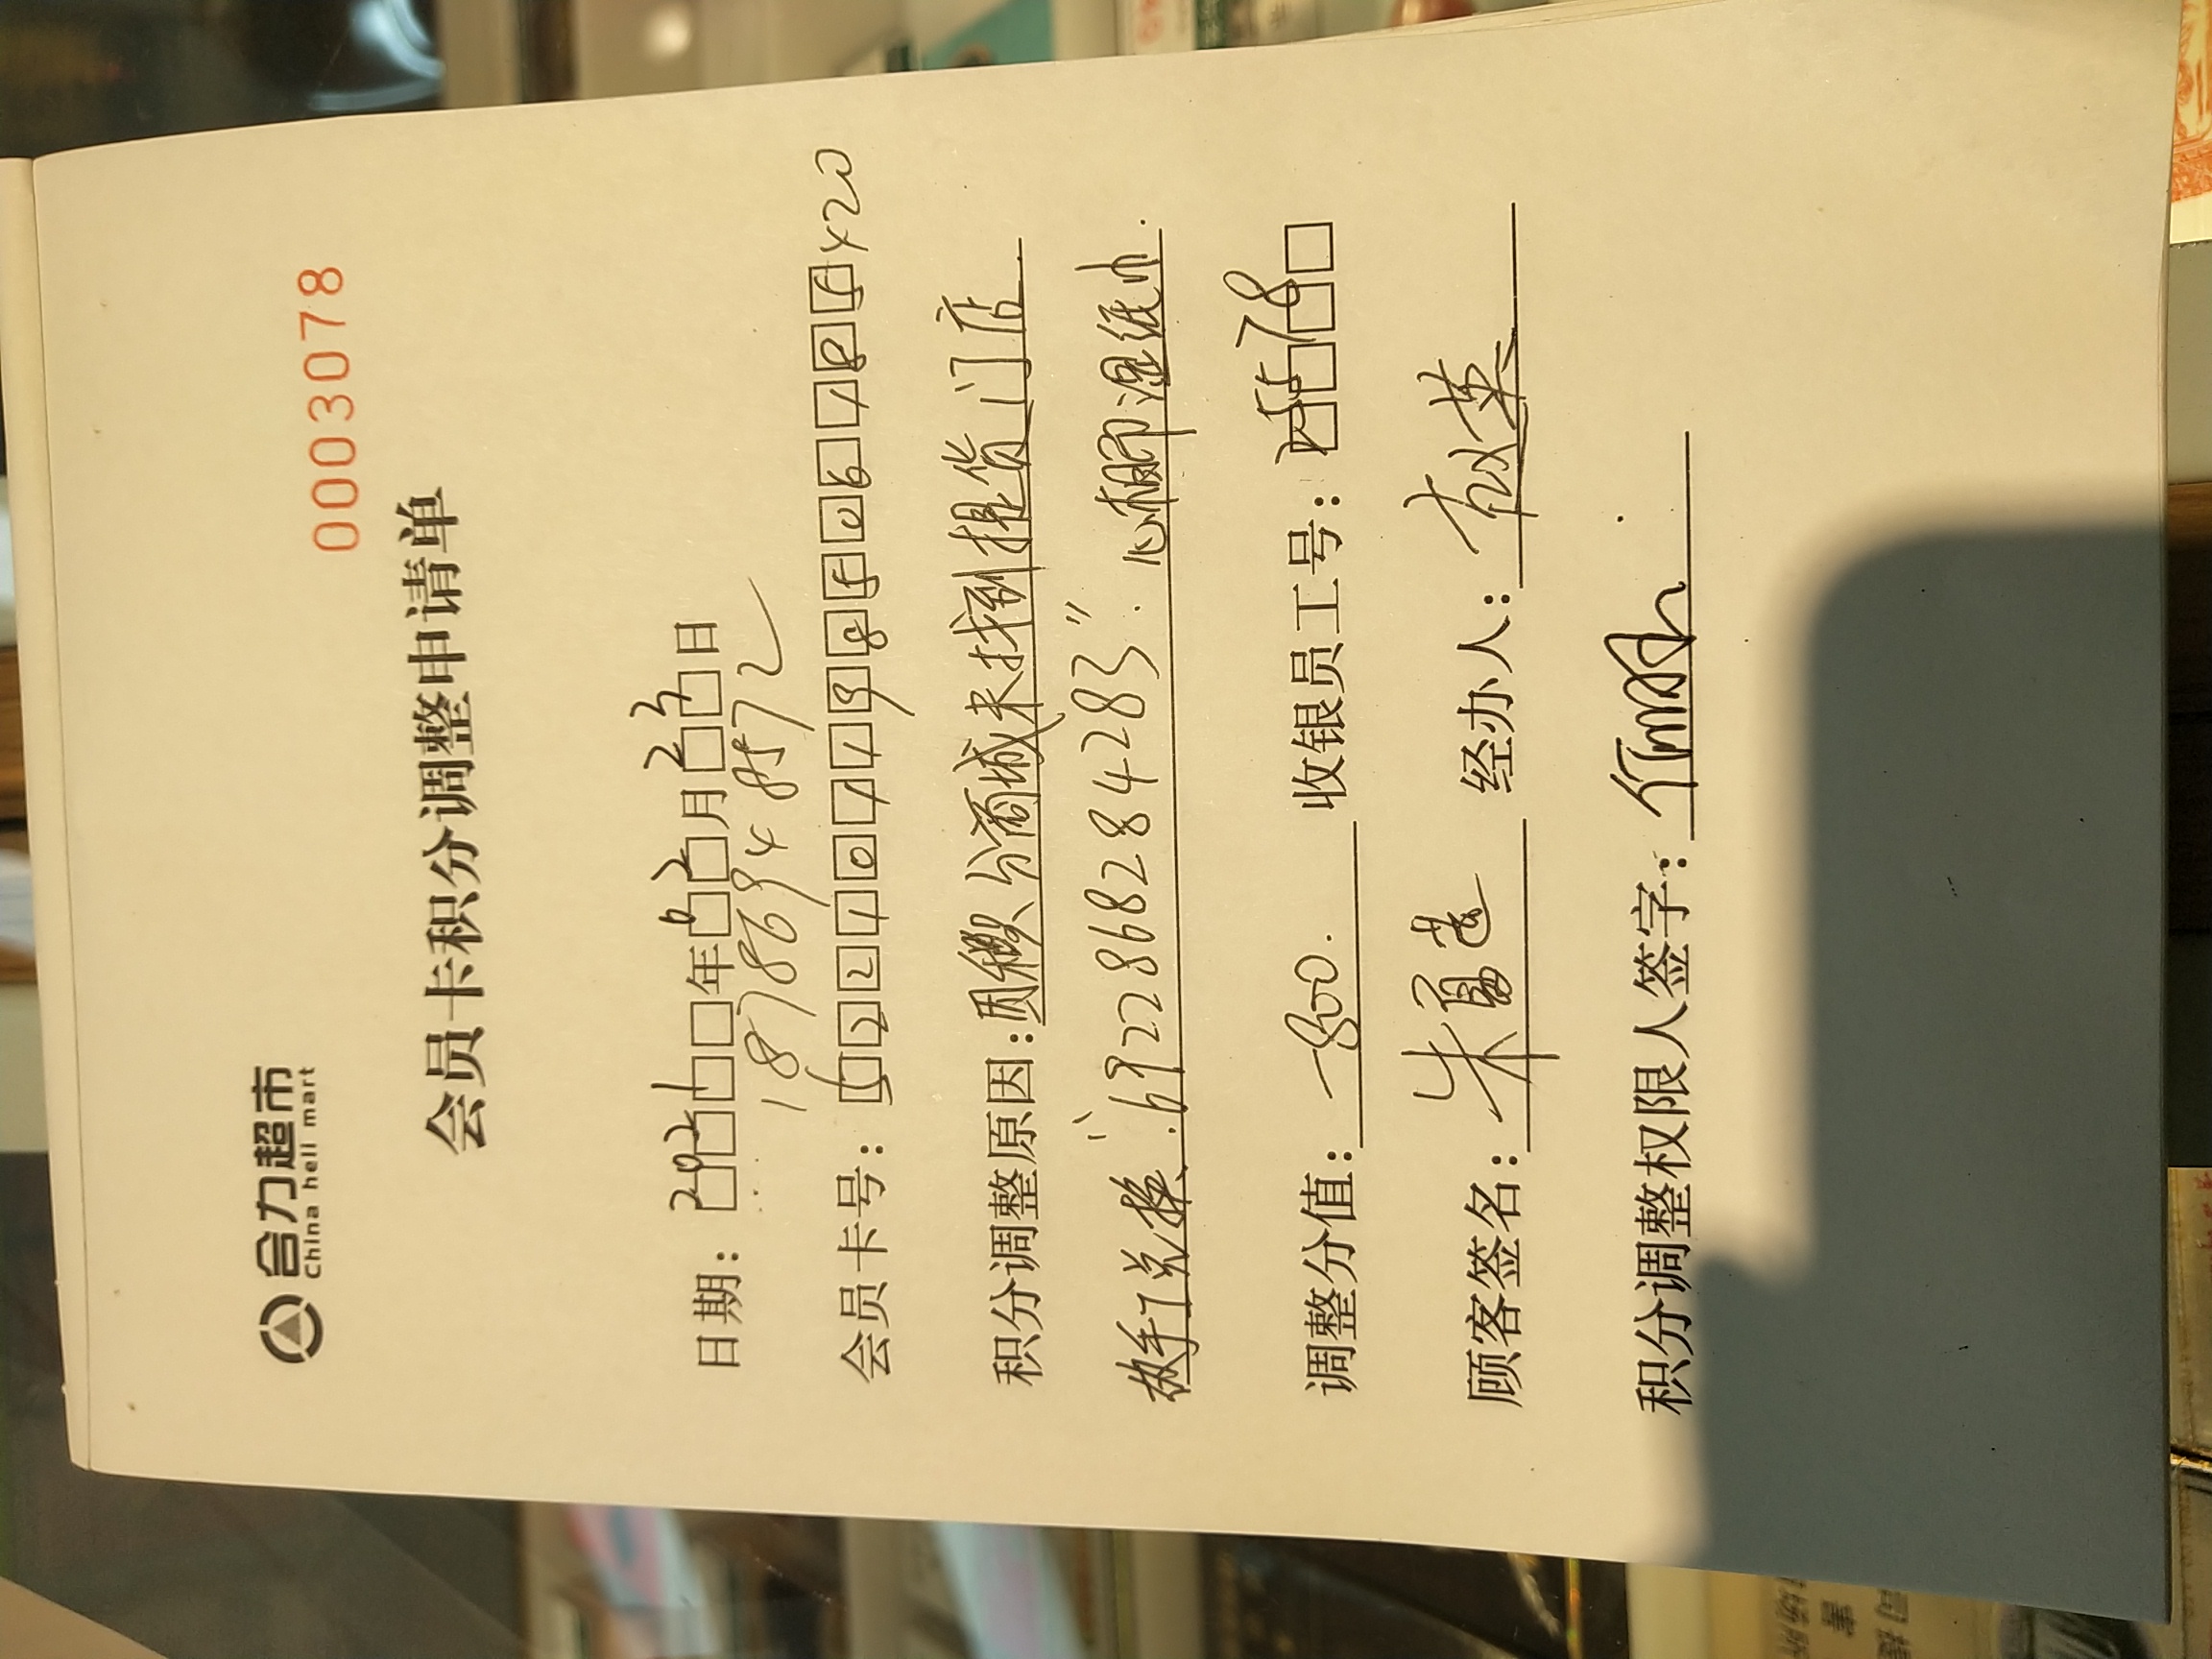 0003078
合力超市
China heli mart
会员卡积分调整申请单
日期：2021年02月23日
18786948572
会员卡号：522101198506185420
积分调整原因：因积分商城未找到提货门店
故手工兑换：“6922868284283”. 心相印湿纸巾.
调整分值：-800. 收银员工号：25578
顾客签名：朱 经办人：
积分调整权限人签字：